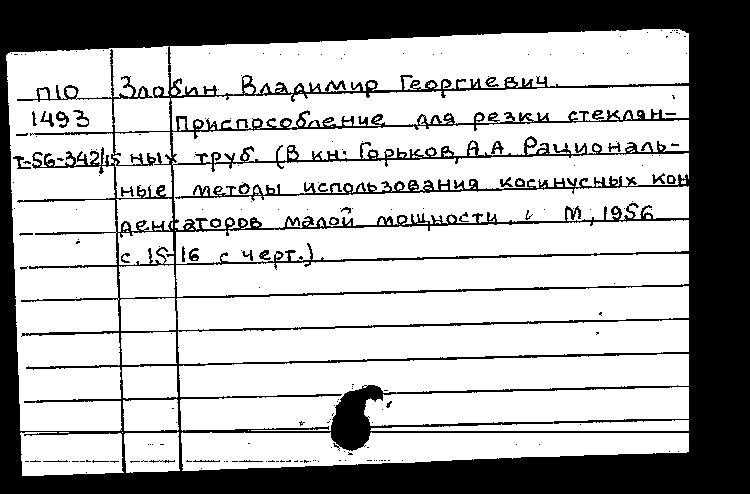 П10 Злобин, Владимир Георгиевич.
1493 Приспособление для резки стеклян-
Т-56-342/15 ных труб. (В кн: Горьков, А.А. Рациональ-
ные методы использования косинусных кон
денсаторов малой мощности. М, 1956
с. 15-16 с черт.).